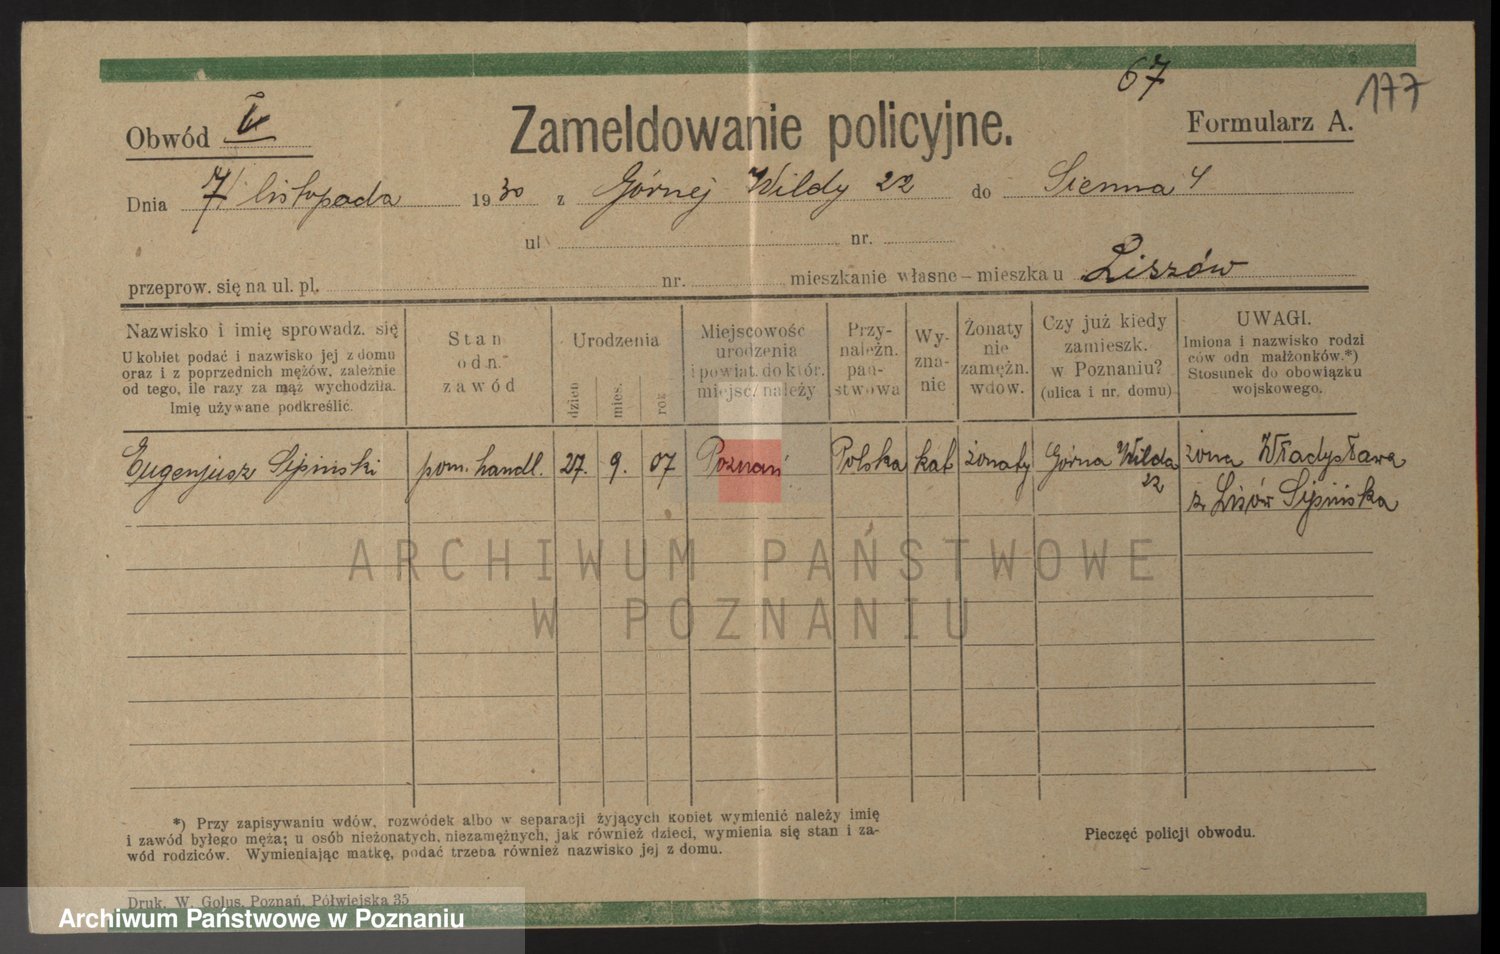 67
177
Obwód V
Zameldowanie policyjne.
Formularz A.
Dnia 7/ listopada 1930 z Górnej Wildy 22 do Sienna 4
ul. nr.
przeprow. się na ul. pl. nr. mieszkanie własne – mieszka u Liszów
Nazwisko i imię sprowadz. się
U kobiet podać i nazwisko jej z domu
oraz i z poprzednich mężów, zależnie
od tego, ile razy za mąż wychodziła.
Imię używane podkreślić.
Stan
odn.
zawód
Urodzenia
dzień
mies.
rok
Miejscowość
urodzenia
i powiat. do któr.
miejsc. należy
Przy-
należn.
pań-
stwowa
Wy-
zna-
nie
Żonaty
nie
zamężn.
wdow.
Czy już kiedy
zamieszk.
w Poznaniu?
(ulica i nr. domu)
UWAGI.
Imiona i nazwisko rodzi
ców odn małżonków.*)
Stosunek do obowiązku
wojskowego.
Eugenjusz Sipiński pom. handl. 27. 9. 07 Poznań Polska kat żonaty Górna Wilda żona Władysława
22 z Lisów Sipińska
ARCHIWUM PAŃSTWOWE
W POZNANIU
*) Przy zapisywaniu wdów, rozwódek albo w separacji żyjących kobiet wymienić należy imię
i zawód byłego męża; u osób nieżonatych, niezamężnych, jak również dzieci, wymienia się stan i za-
wód rodziców. Wymieniając matkę, podać trzeba również nazwisko jej z domu.
Pieczęć policji obwodu.
Druk. W. Golus, Poznań, Półwiejska 35
Archiwum Państwowe w Poznaniu